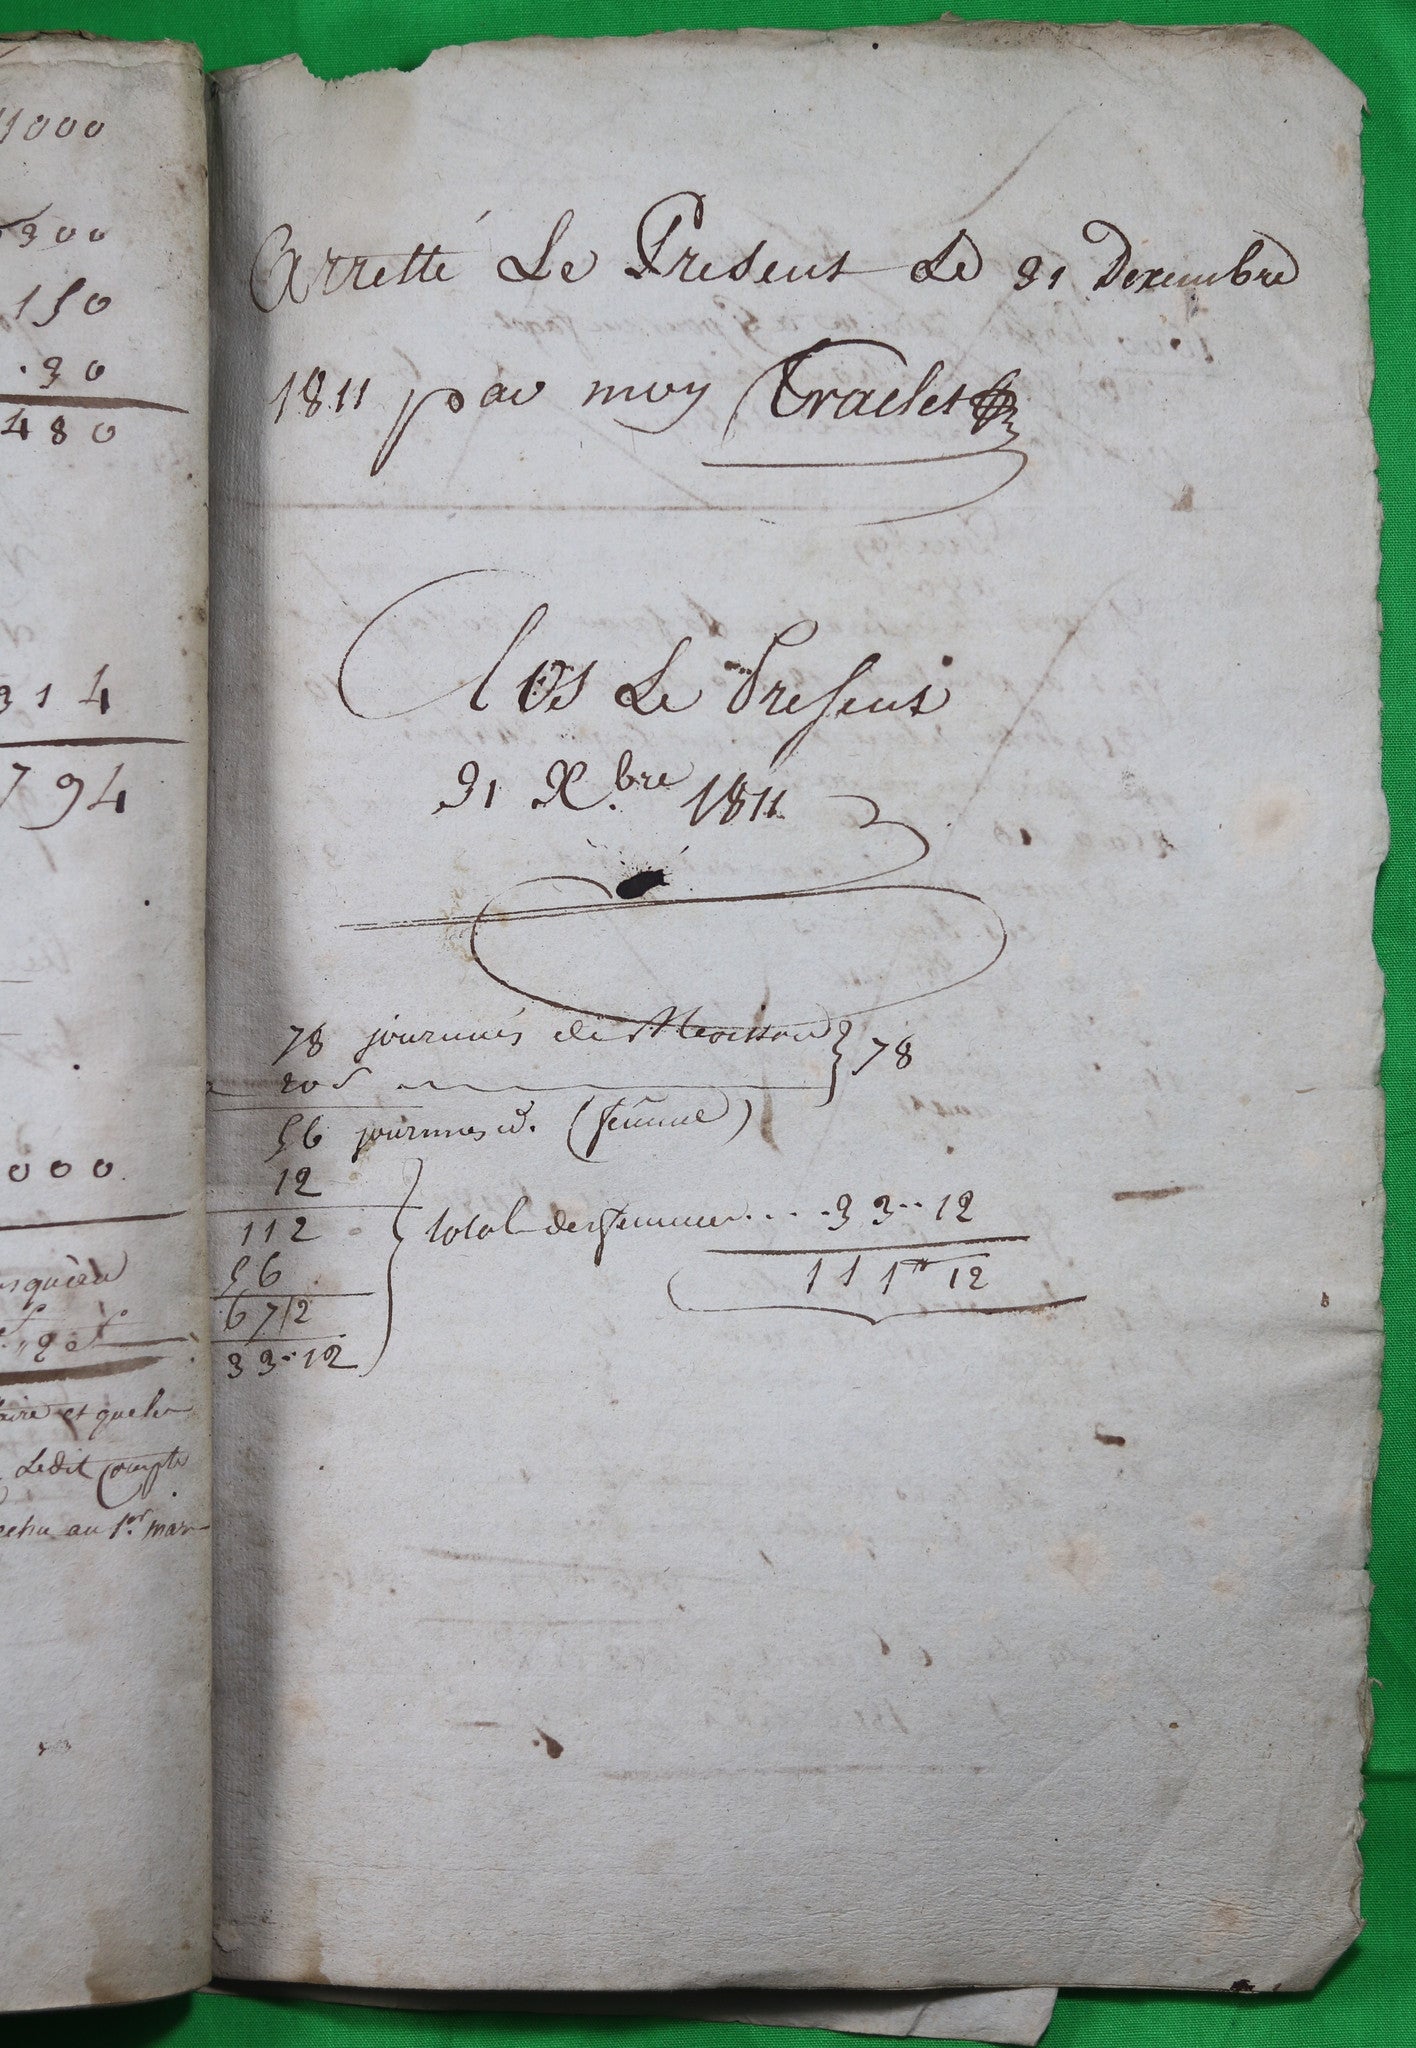 1000
300
150
.30
480
314
794
000
Ledit Compte
echu au 1er. mars
Arretté Le Present Le 31 Dexembre
1811 par moy Trachet
Clos Le Present
31 Xbre 1811
78 journnés de Moisson } 78
20 s
56 journnes id. (femme)
12
112
56
6712
33..12
total des femmes.... 33..12
111tt 12